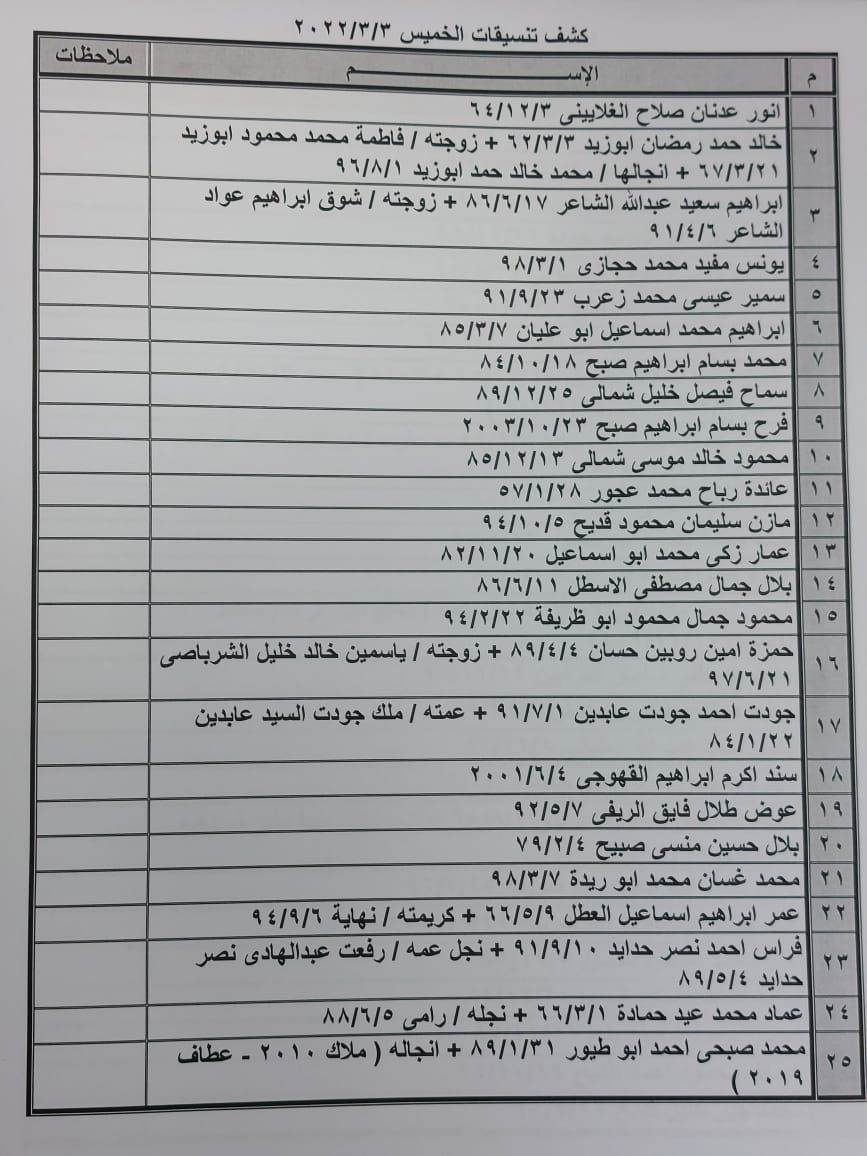 كشف تنسيقات الخميس ٢٠٢٢/٣/٣
م الإســـــــــم ملاحظات
١ انور عدنان صلاح الغلايينى ٦٤/١٢/٣
٢ خالد حمد رمضان ابوزيد ٦٢/٣/٣ + زوجته / فاطمة محمد محمود ابوزيد
٦٧/٣/٢١ + انجالها / محمد خالد حمد ابوزيد ٩٦/٨/١
٣ ابراهيم سعيد عبدالله الشاعر ٨٦/٦/١٧ + زوجته / شوق ابراهيم عواد
الشاعر ٩١/٤/٦
٤ يونس مفيد محمد حجازى ٩٨/٣/١
٥ سمير عيسى محمد زعرب ٩١/٩/٢٣
٦ ابراهيم محمد اسماعيل ابو عليان ٨٥/٣/٧
٧ محمد بسام ابراهيم صبح ٨٤/١٠/١٨
٨ سماح فيصل خليل شمالى ٨٩/١٢/٢٥
٩ فرح بسام ابراهيم صبح ٢٠٠٣/١٠/٢٣
١٠ محمود خالد موسى شمالى ٨٥/١٢/١٣
١١ عائدة رباح محمد عجور ٥٧/١/٢٨
١٢ مازن سليمان محمود قديح ٩٤/١٠/٥
١٣ عمار زكى محمد ابو اسماعيل ٨٢/١١/٢٠
١٤ بلال جمال مصطفى الاسطل ٨٦/٦/١١
١٥ محمود جمال محمود ابو ظريفة ٩٤/٢/٢٢
١٦ حمزة امين روبين حسان ٨٩/٤/٤ + زوجته / ياسمين خالد خليل الشرباصى
٩٧/٦/٢١
١٧ جودت احمد جودت عابدين ٩١/٧/١ + عمته / ملك جودت السيد عابدين
٨٤/١/٢٢
١٨ سند اكرم ابراهيم القهوجى ٢٠٠١/٦/٤
١٩ عوض طلال فايق الريفى ٩٢/٥/٧
٢٠ بلال حسين منسى صبيح ٧٩/٢/٤
٢١ محمد غسان محمد ابو ريدة ٩٨/٣/٧
٢٢ عمر ابراهيم اسماعيل العطل ٦٦/٥/٩ + كريمته / نهاية ٩٤/٩/٦
٢٣ فراس احمد نصر حدايد ٩١/٩/١٠ + نجل عمه / رفعت عبدالهادى نصر
حدايد ٨٩/٥/٤
٢٤ عماد محمد عيد حمادة ٦٦/٣/١ + نجله / رامى ٨٨/٦/٥
٢٥ محمد صبحى احمد ابو طيور ٨٩/١/٣١ + انجاله ( ملاك ٢٠١٠ - عطاف
٢٠١٩ )